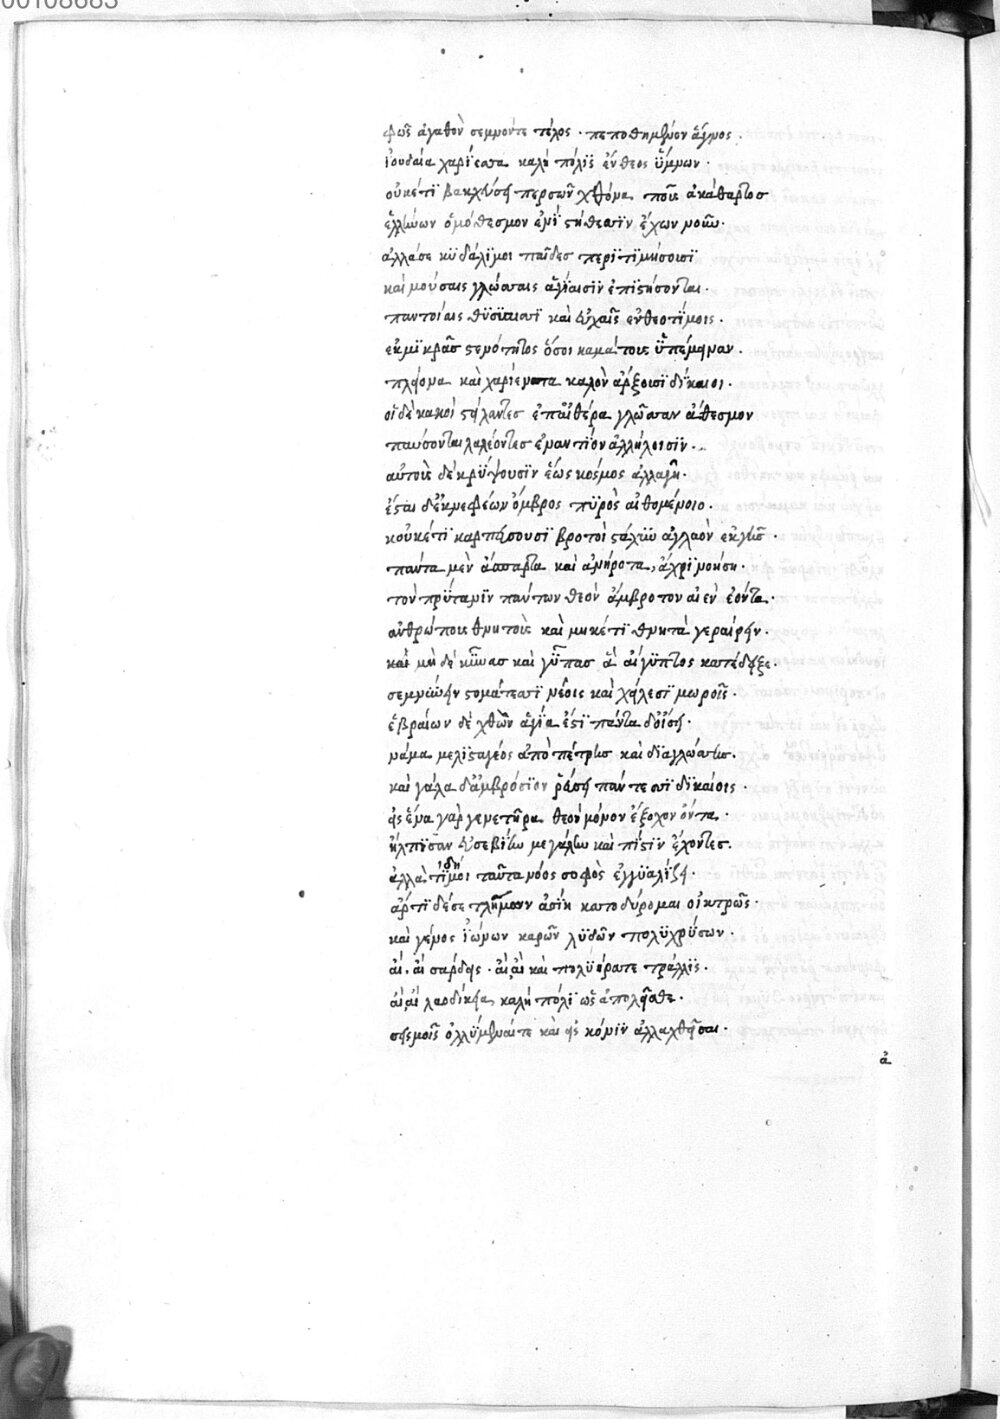 00108683
φῶς ἀγαθὸν σεμνόντε τέλος · πεποθημένον ἁγνὸς ·
ἰουδαία χαρίεσσα καλὴ πόλις ἔνθεος ὕμνων ·
οὐκέτι βακχεύσει περσῶν χθόνα ποῦς ἀκάθαρτος
ἑλλήνων ὁμόθεσμον ἐνὶ στήθεσιν ἔχων νοῦν ·
ἀλλάσε κυδάλιμοι παῖδες περιτιμήσουσι
καὶ μούσαις γλώσσαις ἁγίαισιν ἐπιστήσονται ·
παντοίαις θυσίαισι καὶ εὐχαῖς ἐνθεοτίμοις ·
ἐκ μικρᾶς στενότητος ὅσοι καμάτους ὑπέμειναν ·
πλείονα καὶ χαρίεντα καλὸν ἄρξουσι δίκαιοι ·
οἱ δὲ κακοὶ στείλαντες ἐπ αἰθέρα γλῶσσαν ἄθεσμον
παύσονται λαλέοντες ἐναντίον ἀλλήλοισιν ·
αὐτοὺς δὲ κρύψουσιν ἕως κόσμος ἀλλαγῇ ·
ἔσται δ ἐκ νεφέων ὄμβρος πυρὸς αἰθομένοιο ·
κοὐκέτι καρπίσουσι βροτοὶ στάχυν ἀγλαὸν ἐκ γῆς ·
πάντα μὲν ἄσπαρτα καὶ ἀνήροτα, ἄχρι νοήσῃ ·
τὸν πρύτανιν πάντων θεὸν ἄμβροτον αἰὲν ἐόντα ·
ἀνθρώπους θνητοὺς καὶ μηκέτι θνητὰ γεραίρειν ·
καὶ μὴ δὲ κύνας καὶ γῦπας ἃ αἴγυπτος κατέδειξε ·
σεμνύνειν στομάτεσσι νέοις καὶ χείλεσι μωροῖς ·
ἑβραίων δὲ χθὼν ἁγία ἐστὶ πάντα δ οἴσει ·
νάμα μελισταγέος ἀπὸ πέτρης καὶ διὰ γλώσσης ·
καὶ γάλα δ ἀμβρόσιον ῥεύσει πάντεσσι δικαίοις ·
εἰς ἕνα γὰρ γενετῆρα θεὸν μόνον ἔξοχον ὄντα ·
ἤλπισαν εὐσεβίην μεγάλην καὶ πίστιν ἔχοντες ·
ἀλλὰ τί δή μοι ταῦτα νόος σοφὸς ἐγγυαλίζει ·
ἄρτι δέσε τλῆμον ἀσίη κατοδύρομαι οἰκτρῶς ·
καὶ γένος ἰώνων καρῶν λυδῶν πολυχρύσων ·
αἶ · αἶ σάρδεις · αἶ αἶ καὶ πολυήρατε τράλλις ·
αἶ αἶ λαοδίκεια, καλὴ πόλι ὡς ἀπολεῖσθε ·
σεισμοῖς ὀλλύμεναί τε καὶ εἰς κόνιν ἀλλαχθεῖσαι ·
ἀ